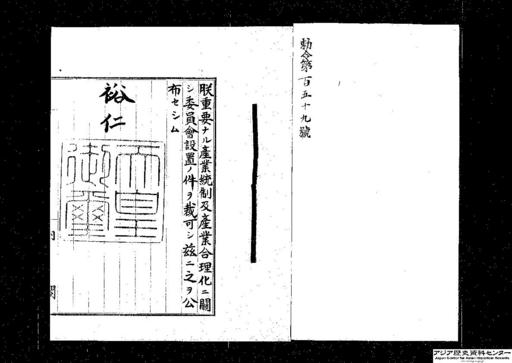 勅令第百五十九號
朕重要ナル產業統制及產業合理化ニ關
シ委員會設置ノ件ヲ裁可シ茲ニ之ヲ公
布セシム
裕仁
天皇
御璽
内
閣
アジア歴史資料センター
Japan Center for Asian Historical Records